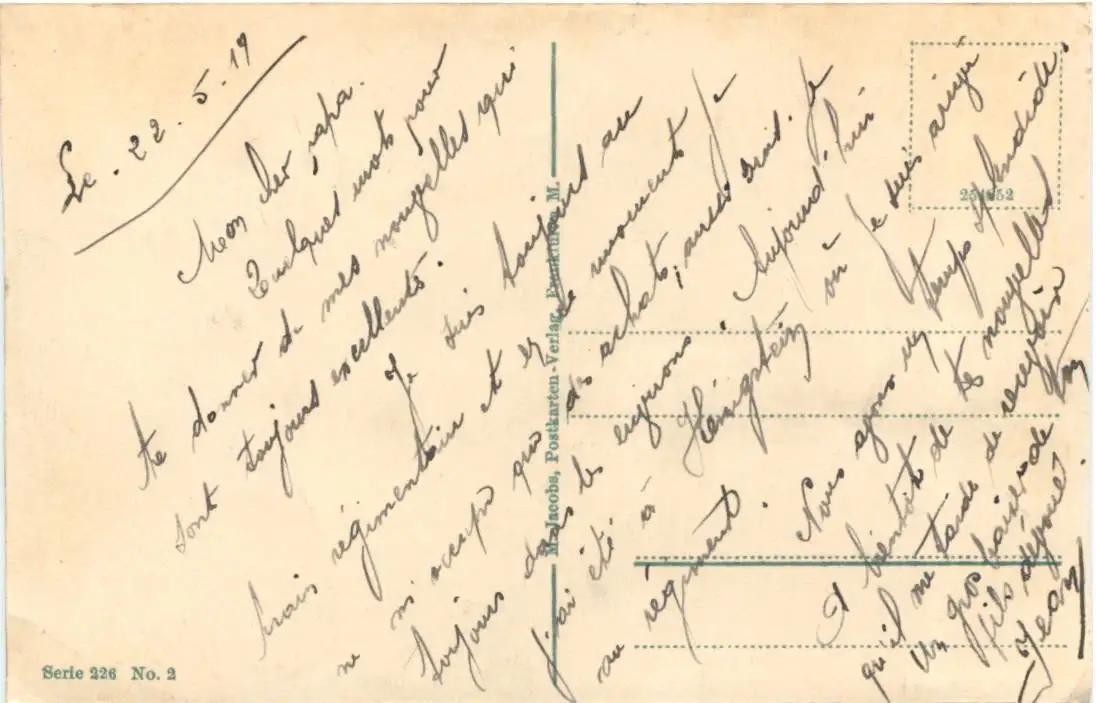 Le - 22 - 5 - 19
Mon cher papa.
Quelques mots pour
te donner de mes nouvelles qui
sont toujours excellentes.
Je suis toujours au
train régimentaire et en ce moment je
ne m'occupe que des achats, aussi suis-je
toujours dans les environs. Aujourd'hui
j'ai été à Königstein où je suis arrivé
au régiment. Nous avons un temps splendide.
A bientôt de te nouvelles
qu'il me tarde de recevoir
Un gros baiser de ton
fils dévoué
Jean
M. Jacobs, Postkarten-Verlag, Frankfurt a. M.
Serie 226 No. 2